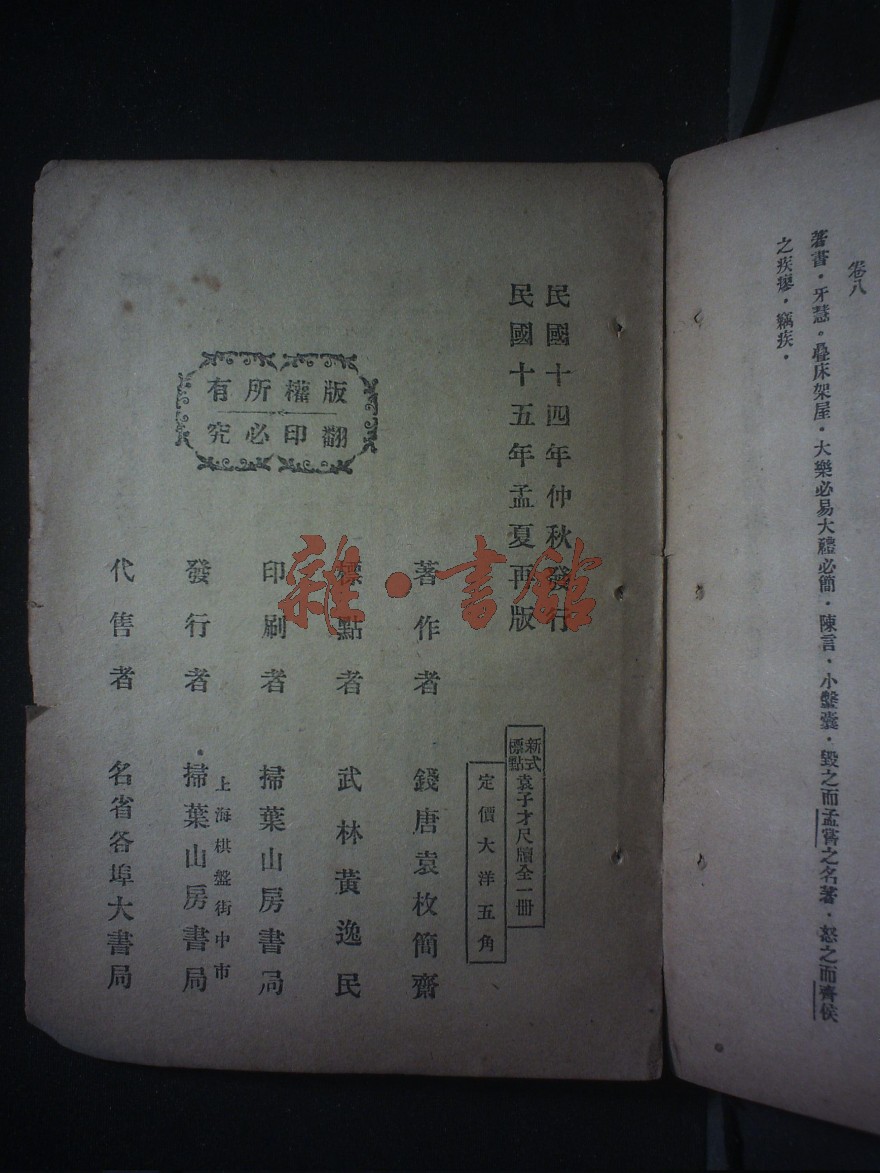 卷八
著書．牙慧。疊床架屋．大樂必易大禮必簡．陳言．小鑿囊．毀之而孟嘗之名著．怒之而齊侯
之疾瘳．竊疾．
民國十四年仲秋發行
民國十五年孟夏再版
新式標點袁子才尺牘全一冊
定價大洋五角
著作者 錢唐袁枚簡齋
標點者 武林黃逸民
印刷者 掃葉山房書局
上海棋盤街中市
發行者 掃葉山房書局
代售者 名省各埠大書局
版權所有
翻印必究
雜·書館